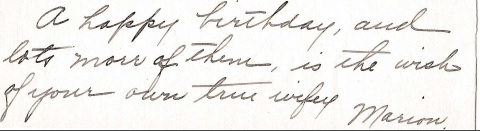 A happy birthday, and
lots more of them, is the wish
of your own true wifey
Marion.